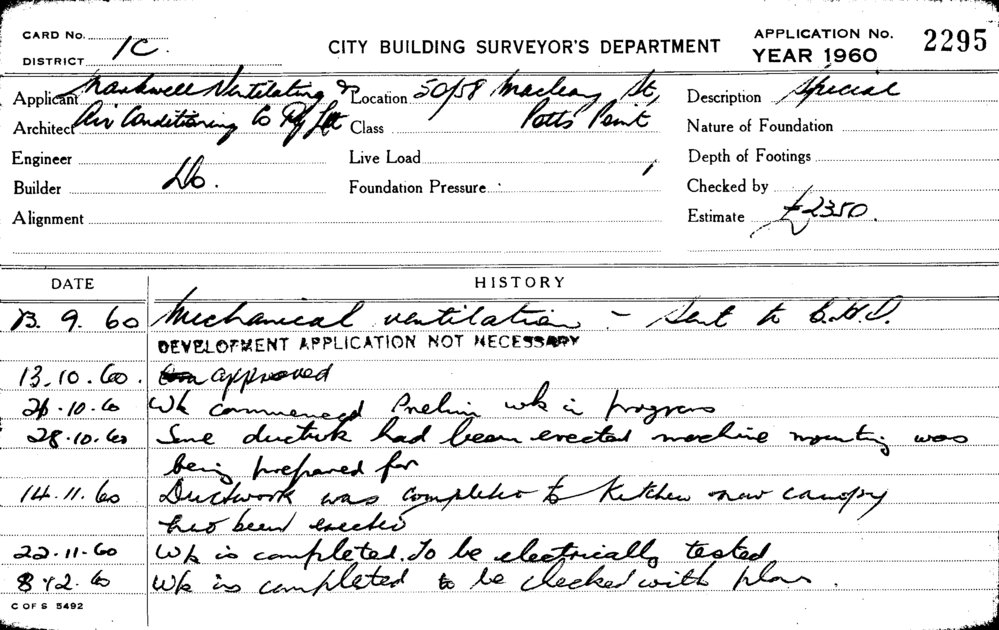 CARD No. 1C.
DISTRICT
CITY BUILDING SURVEYOR'S DEPARTMENT
APPLICATION No. 2295
YEAR 1960
Applicant Ventilating &
Architect Air Conditioning Co Pty Ltd
Engineer
Builder Do.
Alignment
Location 50/58 Macleay St,
Class Potts Point
Live Load
Foundation Pressure
Description Special
Nature of Foundation
Depth of Footings
Checked by
Estimate £2350.
DATE HISTORY
13. 9. 60 Mechanical ventilation - Sent to C.H.D.
DEVELOPMENT APPLICATION NOT NECESSARY
13.10.60. approved
26.10.60 Wk commenced Prelim wk in progress
28.10.60 Some ductwk had been erected machine mounting was
being prepared for
14.11.60 Ductwork was completed to Kitchen new canopy
had been erected
22.11.60 Wk is completed. To be electrically tested
8.12.60 Wk is completed to be checked with plan.
C OF S 5492